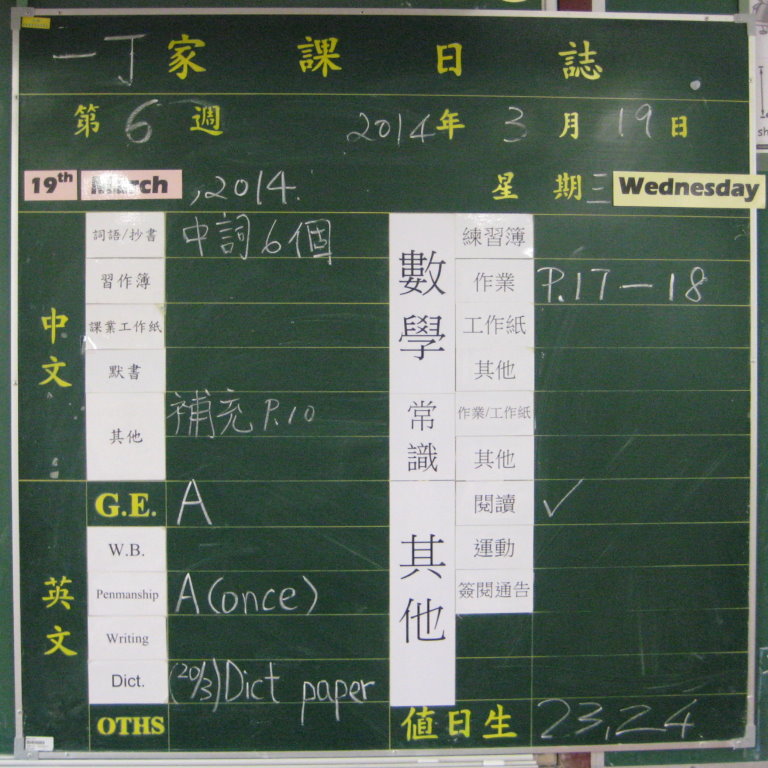 一丁家課日誌
第6週 2014年3月19日
19th March, 2014. 星期三 Wednesday
中文
詞語/抄書 中詞6個
習作簿
課業工作紙
默書
其他 補充P.10
英文
G.E. A
W.B.
Penmanship A(once)
Writing
Dict. (20/3)Dict paper
OTHS
數學
練習簿
作業 P.17-18
工作紙
其他
常識
作業/工作紙
其他
其他
閱讀 ✓
運動
簽閱通告
值日生 23,24